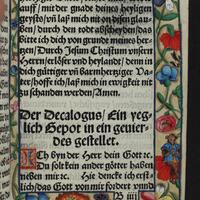 auff/ mit der gnade deines heyligen
geysts/ vñ laß mich nit on disen glau-
ben/ durch den todt abscheyden/ das
bitte ich dich von grunde meines her-
tzen/ Durch Jesum Christum vnsern
Herrn/ erlöser vnd heylandt/ denn in
dich gütiger vñ barmhertziger Va-
ter/ hoffe ich/ laß mich in ewigkeit nit
zu schanden werden/ Amen.
Der Decalogus/ Ein yeg-
lich Gepot in ein gevier-
des gestellet.
Ich byn der Herr dein Gott ꝛc.
Du solt kein ander götter haben
neben mir ꝛc. Hie dencke ich erst-
lich/ das Gott von mir fordert vnnd
B iiij